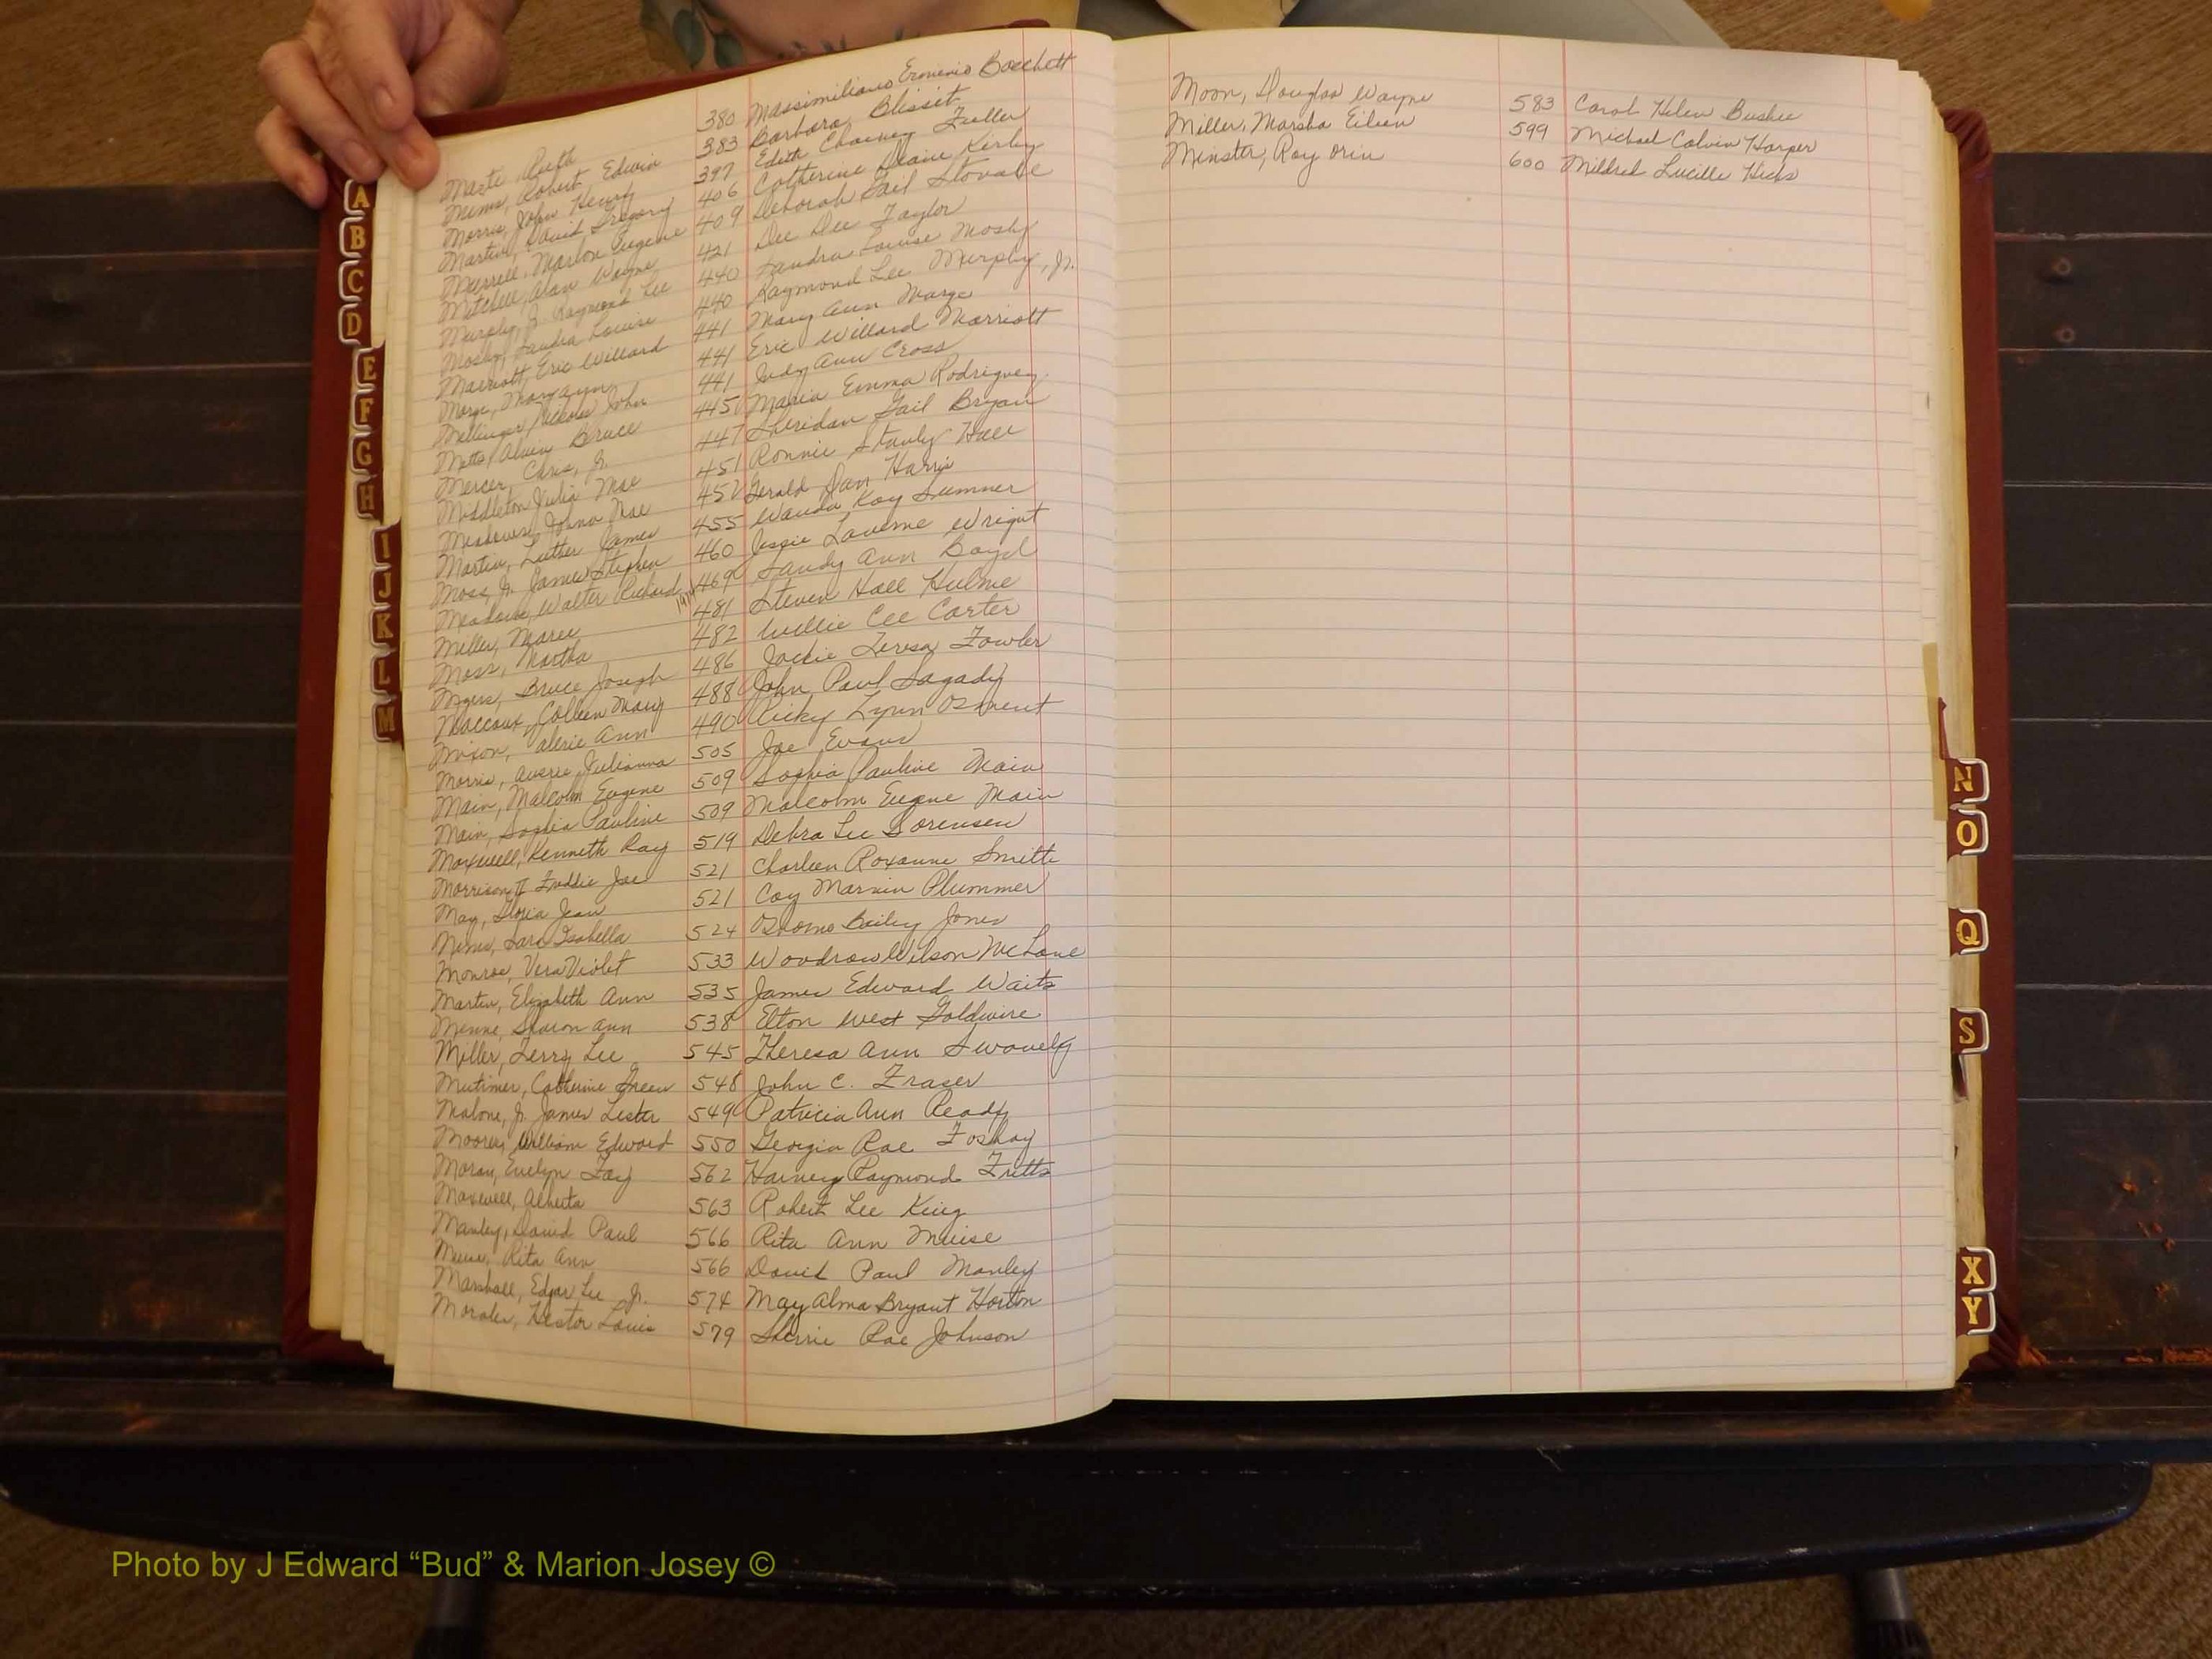 Ruth 380 Massimiliano Ermenio Bocchett
Mims, Robert Edwin 383 Barbara Blisset
Morris, John Henry 397 Edith Chaney Fuller
Martin, David Gregory 406 Catherine Diane Kirby
Murrell, Marlon Eugene 409 Deborah Gail Stovall
Mitchell, Alan Wayne 421 Dee Dee Taylor
Murphy, Jr. Raymond Lee 440 Sandra Louise Mosby
Mosby, Sandra Louise 440 Raymond Lee Murphy, Jr.
Marriott, Eric Willard 441 Mary Ann Marge
Marge, Mary Ann 441 Eric Willard Marriott
John 441 Judy Ann Cross
Metts, Alvin Bruce 445 Maria Emma Rodriguez
Mercer, Chris, Jr. 447 Sheridan Gail Bryan
Middleton, Julia Mae 451 Ronnie Stanly Hall
Meadows, Mae 452 Gerald Jan Harris
Martin, Luther James 455 Wanda Kay Sumner
Moss, Jr. James Stephen 460 Jessie Laverne Wright
Meadows, Walter Richard 469 Sandy Ann Boyd
Miller, Maree 481 Steven Hall Hulme
Moss, Martha 482 Willie Cee Carter
Myers, Bruce Joseph 486 Jackie Teresa Fowler
Maccoux, Colleen Mary 488 John Paul Sagady
Mixon, Valerie Ann 490 Ricky Lynn Osment
Morris, Julianna 505 Joe Evans
Main, Malcolm Eugene 509 Sophia Pauline Main
Main, Sophia Pauline 509 Malcolm Eugene Main
Maxwell, Kenneth Ray 519 Debra Lee Sorensen
Morrison II Freddie Joe 521 Charleen Roxanne Smith
May, Gloria Jean 521 Coy Marvin Plummer
Mims, Sara Isabella 524 Bailey Jones
Monroe, Vera Violet 533 Woodrow Wilson McLane
Martin, Elizabeth Ann 535 James Edward Waits
Menne, Sharon Ann 538 Elton West Goldwire
Miller, Terry Lee 545 Theresa Ann
Mutimer, Catherine Green 548 John C. Fraser
Malone, Jr. James Lester 549 Patricia Ann Ready
Moores, William Edward 550 Georgia Rae Foshay
Moran, Evelyn Fay 562 Harvey Raymond Fritts
Maxwell, Alberta 563 Robert Lee King
Manley, David Paul 566 Rita Ann Muise
Muise, Rita Ann 566 David Paul Manley
Marshall, Edgar Lee Jr. 574 May Alma Bryant Horton
Morales, Hestor Louis 579 Sherrie Rae Johnson
Moon, Douglas Wayne 583 Carol Helen Bushee
Miller, Marsha Eileen 599 Michael Calvin Harper
Minster, Roy Orin 600 Mildred Lucille Hicks
A
B
C
D
E
F
G
H
I
J
K
L
M
N
O
Q
S
X
Y
Photo by J Edward “Bud” & Marion Josey ©